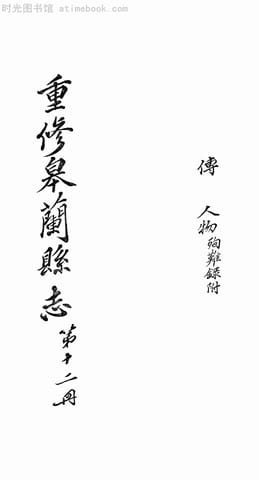 时光图书馆 atimebook.com
傳 人物 殉難錄附
重修皋蘭縣志 第十二冊